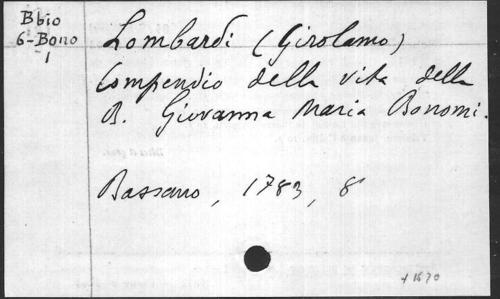 Bbio
6-Bono
1
Lombardi (Girolamo)
Compendio della vita della
B. Giovanna Maria Bonomi.
Bassano, 1783, 8°
+ 1670